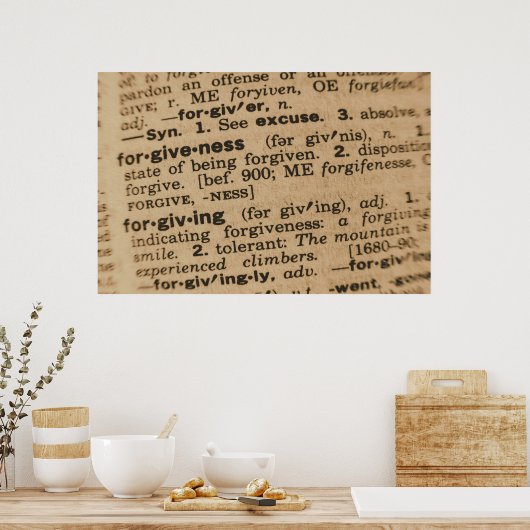 pardon an offense or an
GIVE; r. ME foryiven, OE forgiefan
adj. —for·giv′er, n.
—Syn. 1. See excuse. 3. absolve,
for·give·ness (fər giv′nis), n. 1.
state of being forgiven. 2. disposition
forgive. [bef. 900; ME forgifenesse,
FORGIVE, -NESS]
for·giv·ing (fər giv′ing), adj. 1.
indicating forgiveness: a forgiving
smile. 2. tolerant: The mountain is
experienced climbers. [1680–90;
—for·giv′ing·ly, adv. —for·giv′ing